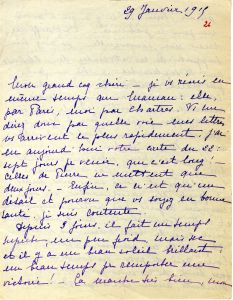 29 Janvier 1915
Mon grand coq chéri – je vous écris en
même temps que Maman : elle,
par Paris, moi par Chartres. Vous me
direz donc par quelle voie mes lettres
vous arrivent le plus rapidement. J'ai
eu aujourd'hui votre carte du 22 :
sept jours pour venir, que c'est long !
celles de Pierre ne mettent que
deux jours. – Enfin, ce n'est qu'un
détail et pourvu que vous soyez en bonne
santé, je suis contente.
Depuis 3 jours, il fait un temps
superbe, un peu froid, mais sec
et il y a un beau soleil brillant,
un beau temps pour remporter une
victoire !